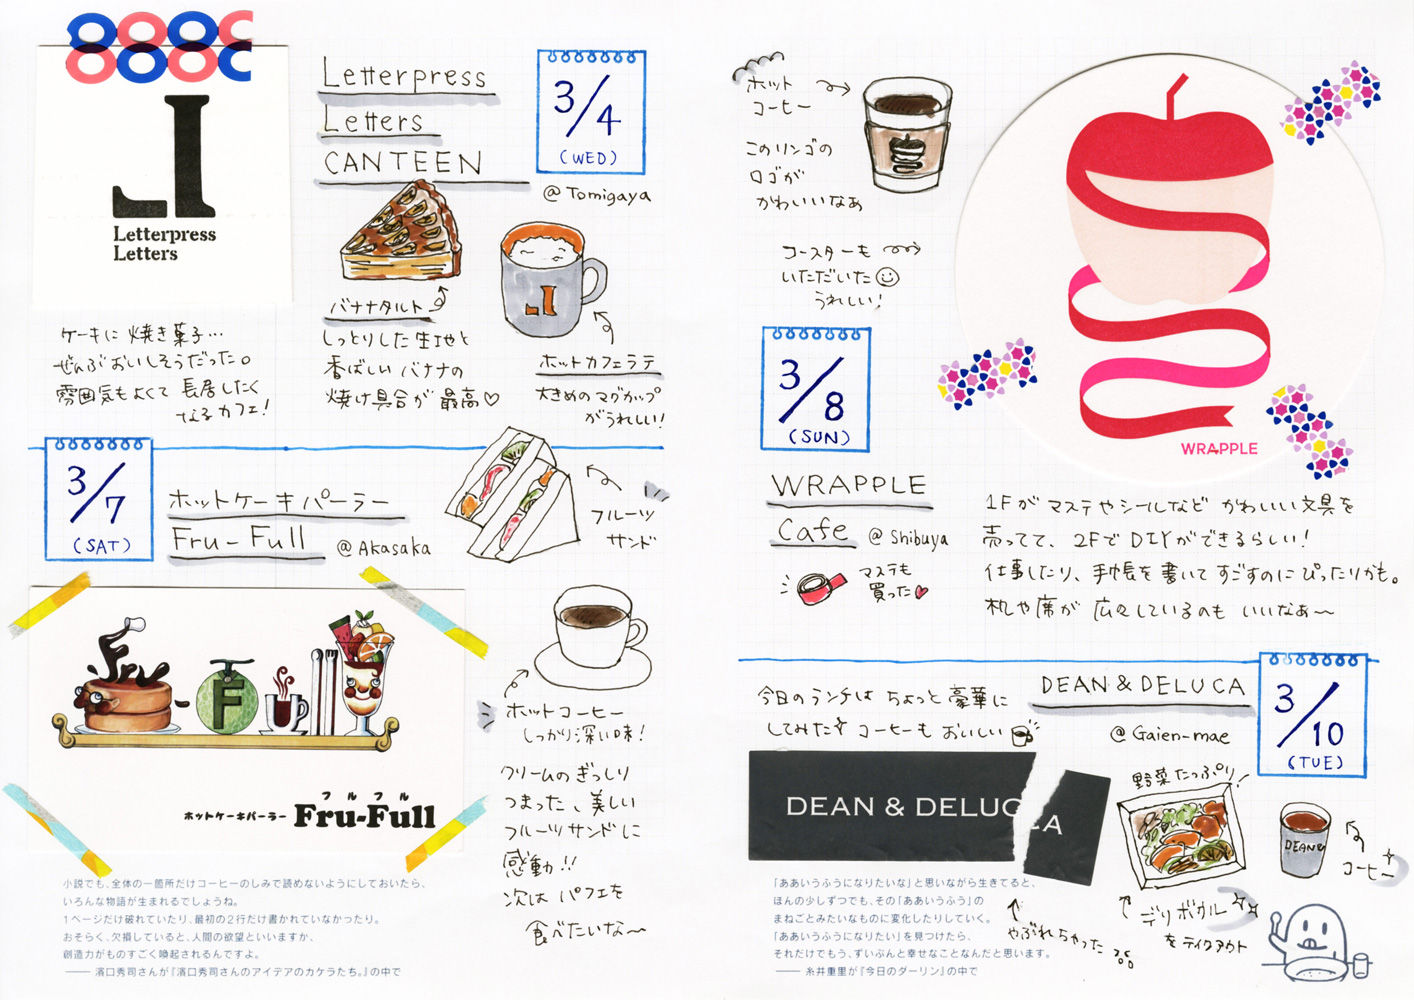 Letterpress
Letters
CANTEEN
3/4
(WED)
@Tomigaya
Letterpress
Letters
ケーキに 焼き菓子…
ぜんぶおいしそうだった。
雰囲気もよくて 長居したく
なるカフェ!
バナナタルト
しっとりした生地と
香ばしい バナナの
焼け具合が 最高♡
ホットカフェラテ
大きめのマグカップ
がうれしい!
3/7
(SAT)
ホットケーキパーラー
Fru-Full
@Akasaka
フルーツ
サンド
Fru
F
フルフル
ホットケーキパーラー Fru-Full
ホットコーヒー
しっかり深い味!
クリームのぎっしり
つまった、美しい
フルーツサンドに
感動!!
次は パフェを
食べたいな〜
小説でも、全体の一箇所だけコーヒーのしみで読めないようにしておいたら、
いろんな物語が生まれるでしょうね。
1ページだけ破れていたり、最初の2行だけ書かれていなかったり。
おそらく、欠損していると、人間の欲望といいますか、
創造力がものすごく喚起されるんですよ。
—— 濱口秀司さんが『濱口秀司さんのアイデアのカケラたち。』の中で
ホット
コーヒー
このリンゴの
ロゴが
かわいいなぁ
コースターも
いただいた☺
うれしい!
WRAPPLE
3/8
(SUN)
WRAPPLE
Cafe @Shibuya
マステも
買った♥
1Fが マステやシールなど かわいい文具を
売ってて、2Fで DIYができるらしい!
仕事したり、手帳を書いてすごすのにぴったりかも。
机や席が 広々しているのも いいなぁ〜
今日のランチは ちょっと豪華に
してみた コーヒーも おいしい
DEAN & DELUCA
@Gaien-mae
3/10
(TUE)
DEAN & DELUCA
やぶれちゃった
野菜たっぷり!
デリボックル
をテイクアウト
DEAN&
コーヒー
「ああいうふうになりたいな」と思いながら生きてると、
ほんの少しずつでも、その「ああいうふう」の
まねごとみたいなものに変化したりしていく。
「ああいうふうになりたい」を見つけたら、
それだけでもう、ずいぶんと幸せなことなんだと思います。
—— 糸井重里が『今日のダーリン』の中で